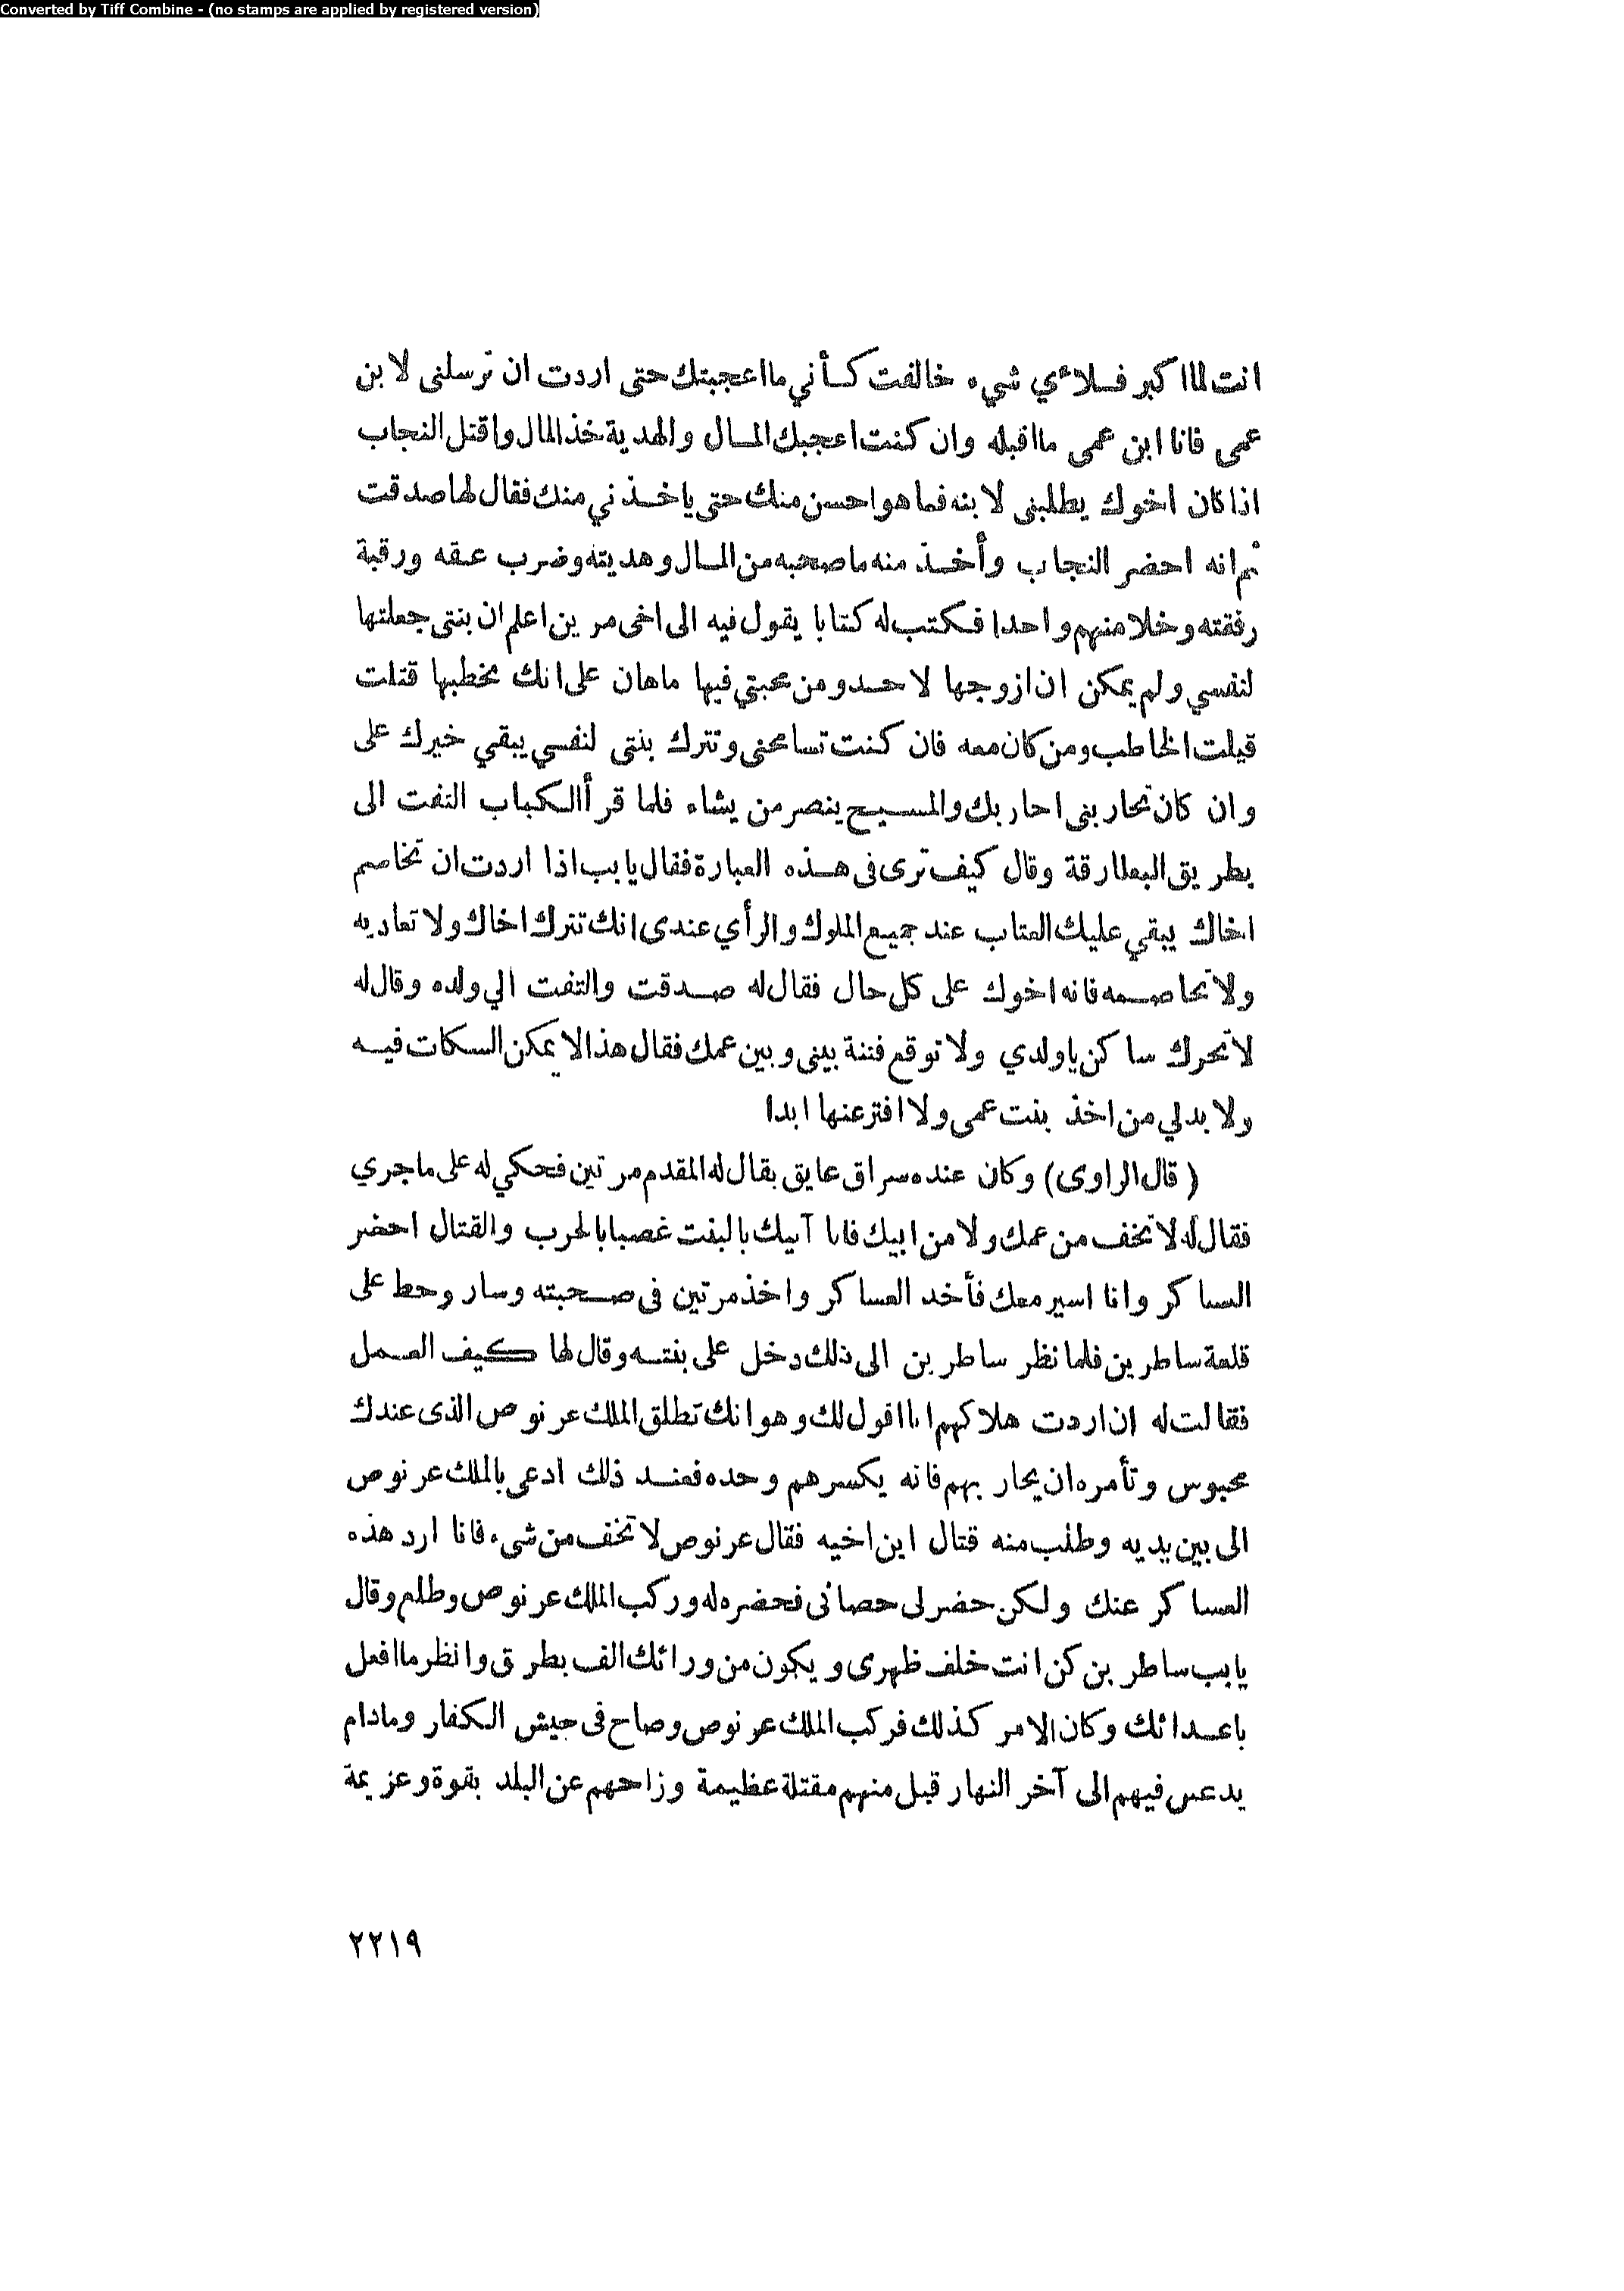 Converted by Tiff Combine - (no stamps are applied by registered version)
انت لما اكبر فلاءي شيء خالفت كأني ما اعجبتك حتى اردت ان ترسلنى لابن
عمى فانا ابن عمى ما اقبله وان كنت اعجبك المال والهدية خذ المال واقتل النجاب
اذا كان اخوك يطلبنى لابنه فما هو احسن منك حتى ياخذني منك فقال لها صدقت
ثم انه احضر النجاب وأخذ منه ما صحبه من المال وهديته وضرب عنقه ورقبة
رفقته وخلا منهم واحدا فكتب له كتابا يقول فيه الى اخى مرين اعلم ان بنتى جعلتها
لنفسي ولم يمكن ان ازوجها لاحد ومن محبتي فيها ماهان على انك تخطبها قتلت
قيلت الخاطب ومن كان معه فان كنت تسامحنى وتترك بنتى لنفسي يبقي خيرك على
وان كان تحاربنى احاربك والمسيح ينصر من يشاء فلما قرأ الكباب التفت الى
بطريق البطارقة وقال كيف ترى فى هذه العبارة فقال يابب اذا اردت ان تخاصم
اخاك يبقي عليك العتاب عند جميع الملوك والرأي عندى انك تترك اخاك ولا تعاديه
ولا تخاصمه فانه اخوك على كل حال فقال له صدقت والتفت الي ولده وقال له
لا تحرك ساكن ياولدي ولا توقع فتنة بينى وبين عمك فقال هذا لا يمكن السكات فيه
ولا بد لي من اخذ بنت عمى ولا افتر عنها ابدا
( قال الراوى ) وكان عنده سراق عايق يقال له المقدم مرتين فحكي له على ما جري
فقال له لا تخف من عمك ولا من ابيك فانا آتيك بالبنت غصبا بالحرب والقتال احضر
العساكر وانا اسير معك فأخد العساكر واخذ مرتين فى صحبته وسار وحط على
قلعة ساطرين فلما نظر ساطرين الى ذلك دخل على بنته وقال لها كيف العمل
فقالت له ان اردت هلاكهم انا اقول لك وهو انك تطلق الملك عرنوص الذى عندك
محبوس وتأمره ان يحاربهم فانه يكسرهم وحده فعند ذلك ادعى بالملك عرنوص
الى بين يديه وطلب منه قتال ابن اخيه فقال عرنوص لا تخف من شىء فانا ارد هذه
العساكر عنك ولكن حضر لى حصانى فحضره له وركب الملك عرنوص وطلع وقال
يابب ساطرين كن انت خلف ظهرى ويكون من ورائك الف بطرق وانظر ما افعل
باعدائك وكان الامر كذلك فركب الملك عرنوص وصاح فى جيش الكفار ومادام
يدعس فيهم الى آخر النهار قبل منهم مقتلة عظيمة وزاحهم عن البلد بقوة وعزيمة
٢٢١٩